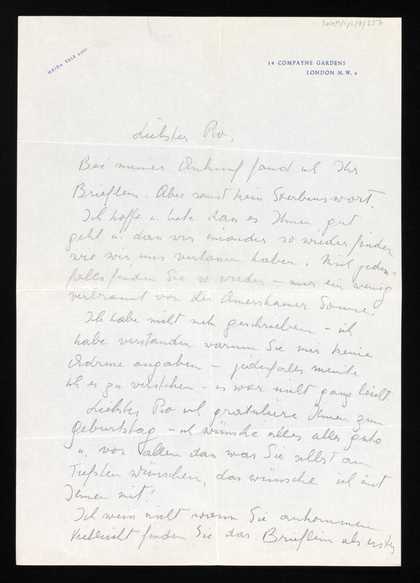 14 COMPAYNE GARDENS
LONDON N.W. 6
Liebster Ro,
Bei meiner Ankunft fand ich Ihr
Brieflein. Aber sonst kein Sterbenswort.
Ich hoffe u. dass es Ihnen gut
geht u. dass wir einander so wieder finden
wie wir uns verlassen haben.
falls finden Sie so wieder – nur ein wenig
verbrannt von der Sonne.
Ich habe nicht mehr geschrieben – ich
habe verstanden warum Sie mir keine
Adresse angaben – jedenfalls meinte
ich es zu verstehen – es war nicht ganz leicht
Liebster Ro ich gratuliere Ihnen zum
Geburtstag – ich wünsche alles alles gute
u. vor allem dass was Sie selbst am
Tiefsten wünschen, das wünsche ich mit
Ihnen mit!
Ich weiss nicht wann Sie ankommen
Vielleicht finden Sie das Brieflein als erstes